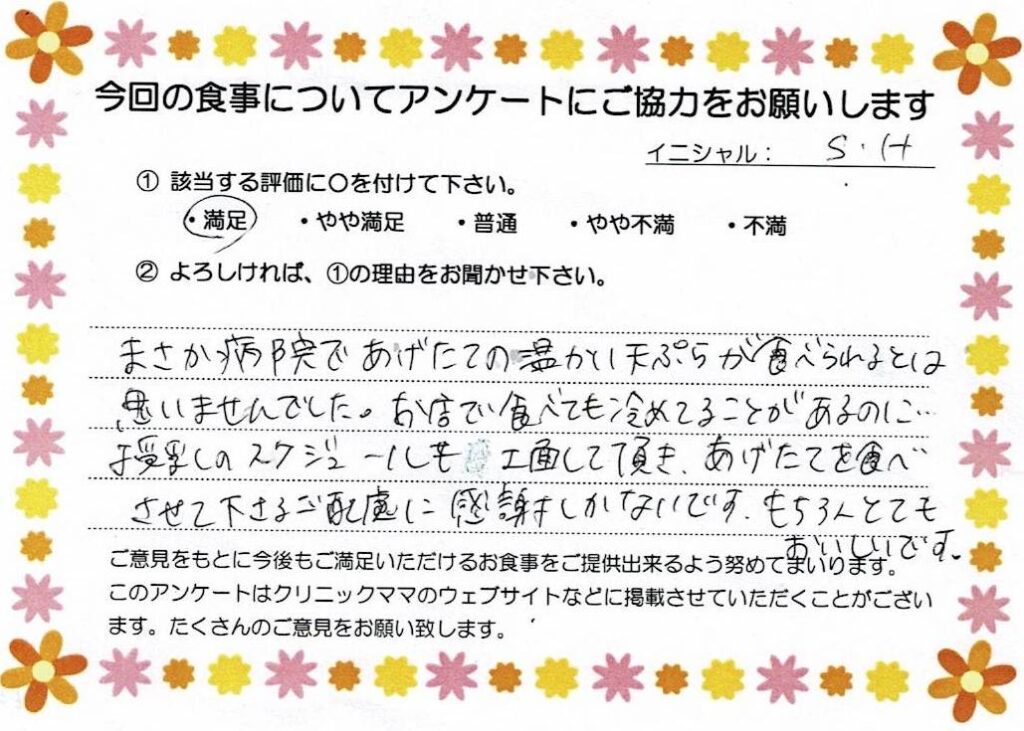 今回の食事についてアンケートにご協力をお願いします
イニシャル： S・H
① 該当する評価に〇を付けて下さい。
・満足 ・やや満足 ・普通 ・やや不満 ・不満
② よろしければ、①の理由をお聞かせ下さい。
まさか病院であげたての温かい天ぷらが食べられるとは
思いませんでした。お店で食べても冷めてることがあるのに…
授乳しのスケジュールしも工面して頂き、あげたてを食べ
させて下さるご配慮に感謝しかないです。もちろんとても
おいしいです。
ご意見をもとに今後もご満足いただけるお食事をご提供出来るよう努めてまいります。
このアンケートはクリニックママのウェブサイトなどに掲載させていただくことがござい
ます。たくさんのご意見をお願い致します。